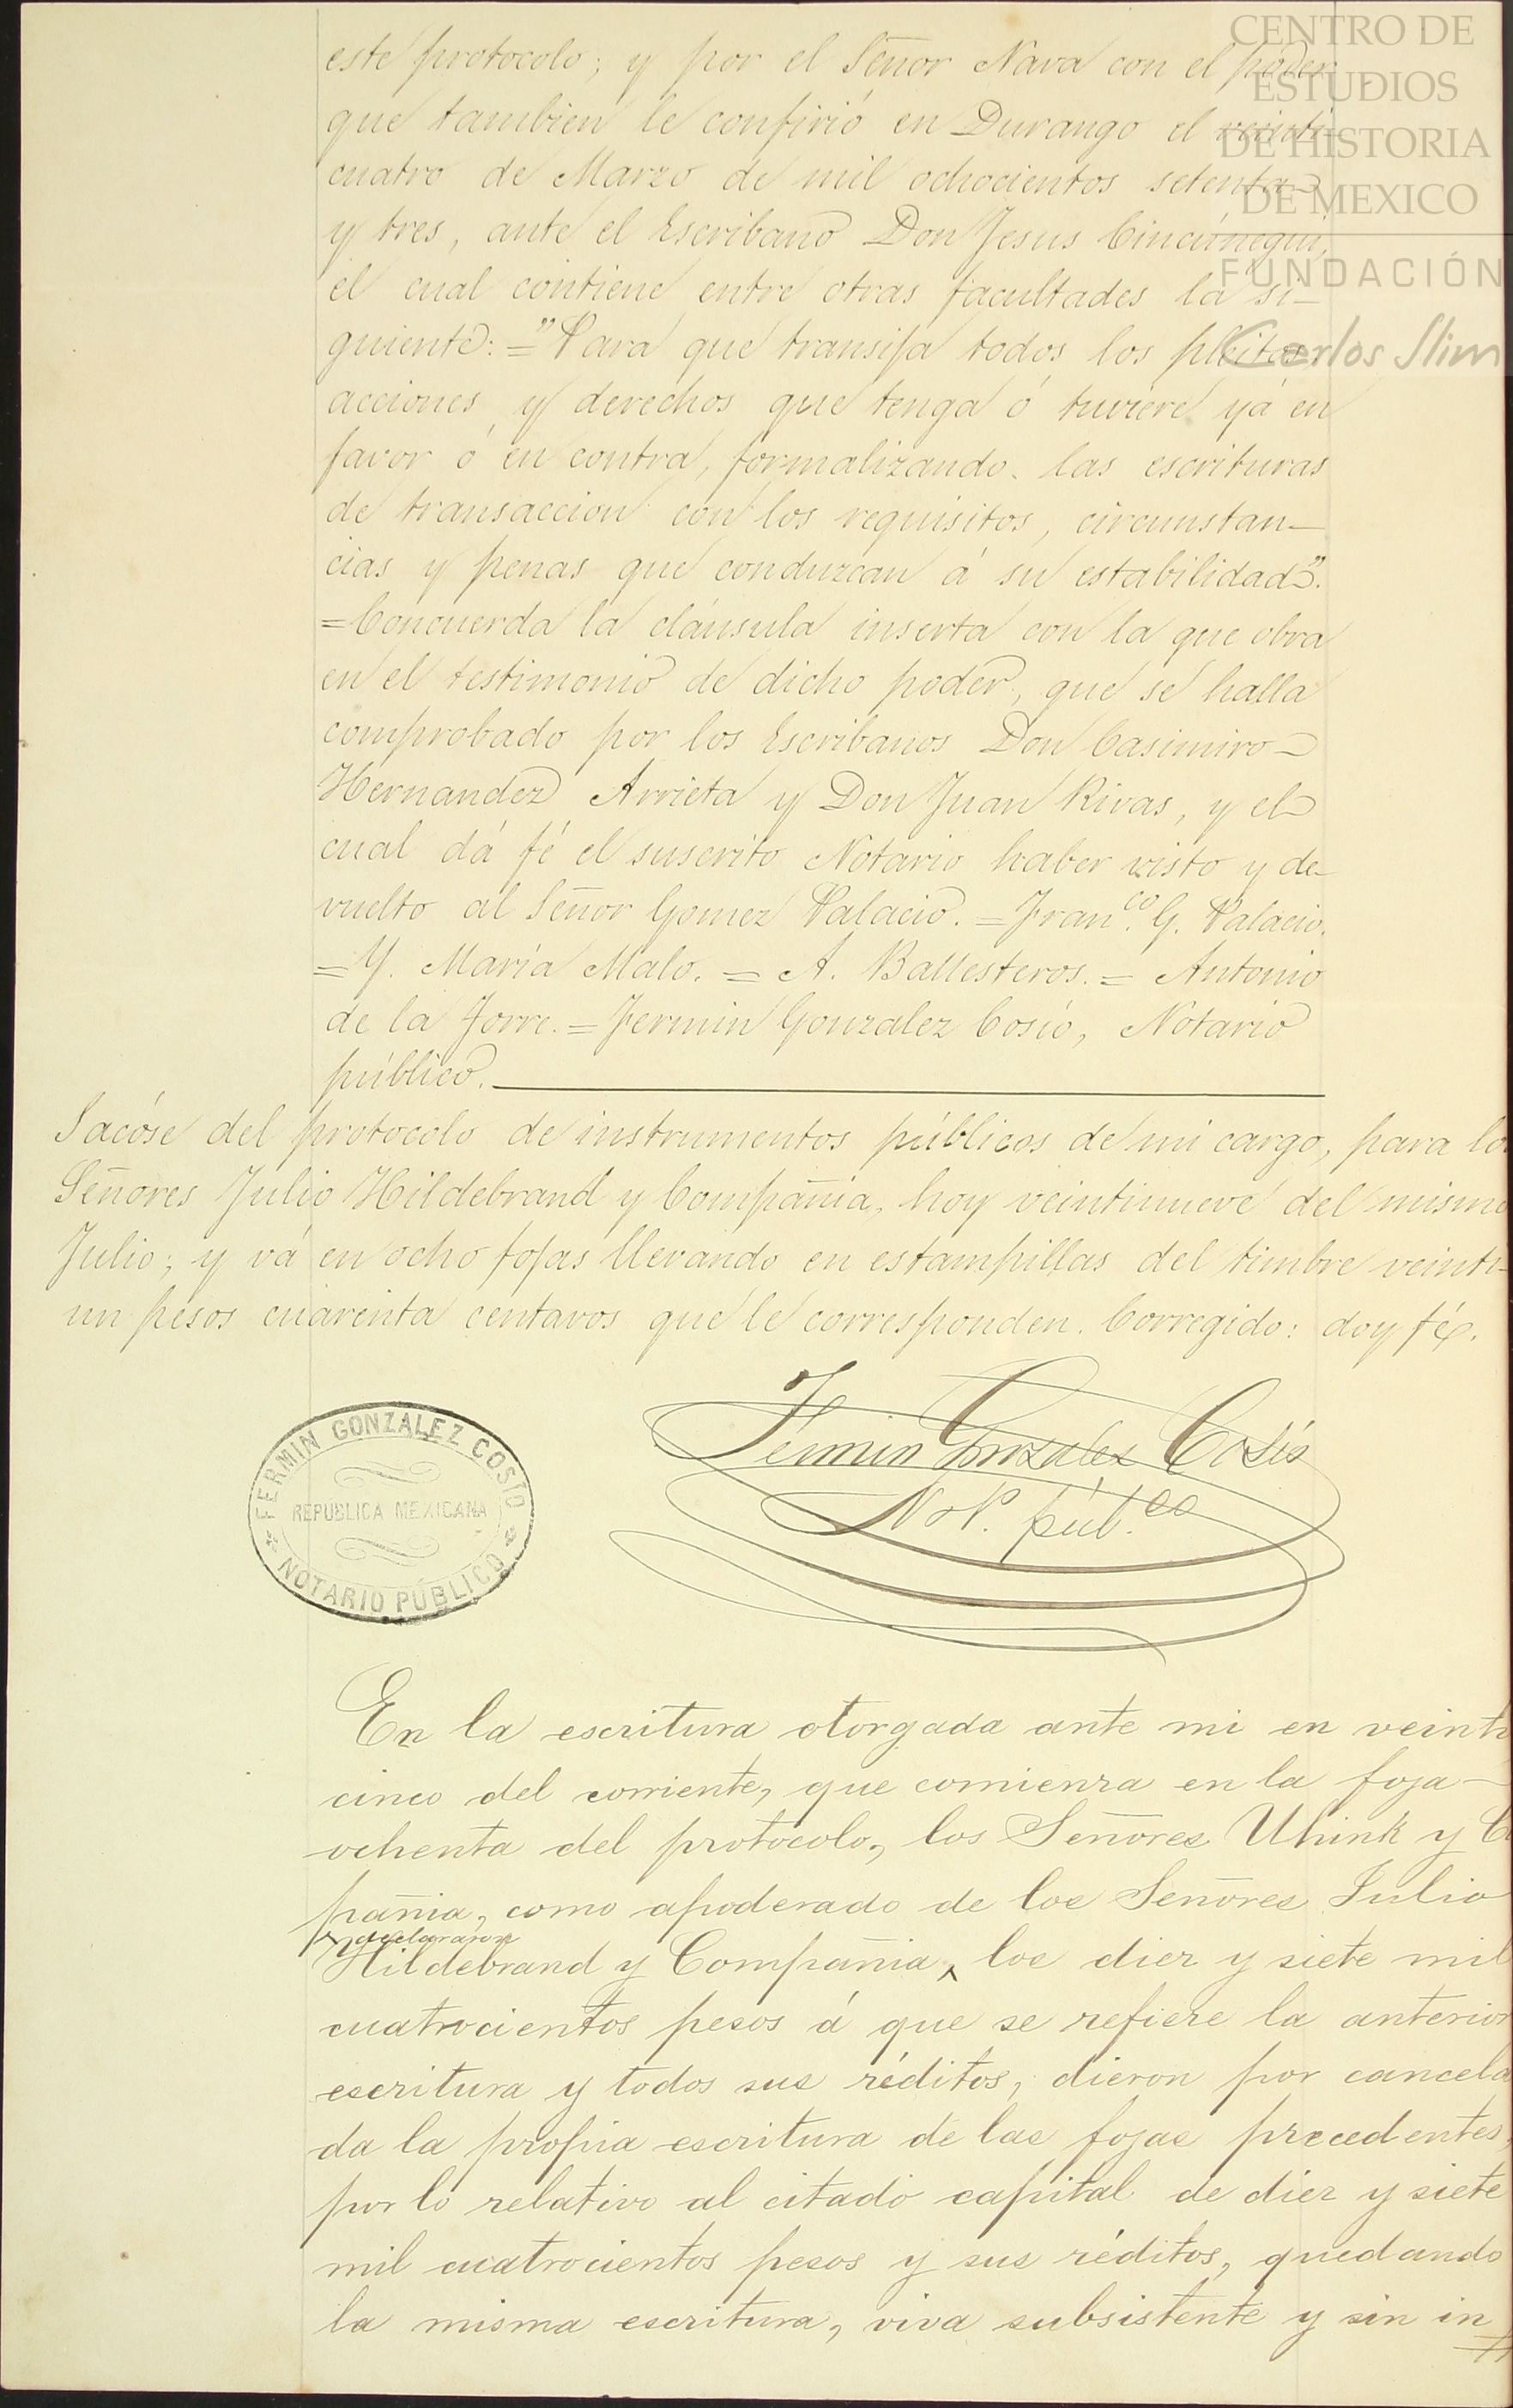 CENTRO DE
ESTUDIOS
DE HISTORIA
DE MEXICO
FUNDACIÓN
Carlos Slim
este protocolo; y por el Señor Nava con el poder
que tambien le confirió en Durango el veinti-
cuatro de Marzo de mil ochocientos setenta
y tres, ante el Escribano Don Jesus
el cual contiene entre otras facultades la si-
guiente: = "Para que transija todos los pleitos,
acciones, y derechos que tenga ó tuviere yá en
favor ó en contra, formalizando las escrituras
de transaccion con los requisitos, circunstan-
cias y penas que conduzcan á su estabilidad".
= Concuerda la cláusula inserta con la que obra
en el testimonio de dicho poder, que se halla
comprobado por los Escribanos Don Casimiro
Hernandez Arrieta y Don Juan Rivas, y el
cual dá fé el suscrito Notario haber visto y de-
vuelto al Señor Gomez Palacio. = Fran.co G. Palacio.
= Y. María Malo. = A. Ballesteros. = Antonio
de la Torre. = Fermin Gonzalez Cosío, Notario
público.
Sacóse del protocolo de instrumentos públicos de mi cargo, para lo
Señores Julio Hildebrand y Compañia, hoy veintinueve del mismo
Julio; y vá en ocho fojas llevando en estampillas del timbre veinti-
un pesos cuarenta centavos que le corresponden. Corregido: doy fé.
FERMIN GONZALEZ COSIO
REPÚBLICA MEXICANA
NOTARIO PÚBLICO
Fermin Gonzalez Cosío
Not. púb.co
En la escritura otorgada ante mi en veinti
cinco del corriente, que comienza en la foja
ochenta del protocolo, los Señores Uhink y C
pañia, como apoderado de los Señores Julio
declararon
Hildebrand y Compañia, los diez y siete mil
cuatrocientos pesos á que se refiere la anterior
escritura y todos sus réditos, dieron por cancela
da la propia escritura de las fojas precedentes,
por lo relativo al citado capital de diez y siete
mil cuatrocientos pesos y sus réditos, quedando
la misma escritura, viva subsistente y sin in